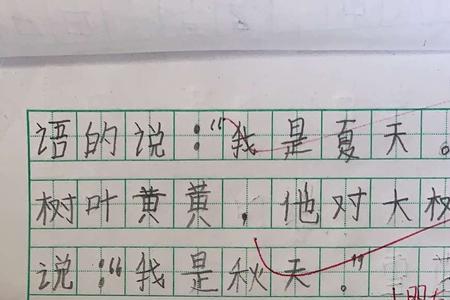 语的说："我是夏天。
树叶黄黄，他对大树
说："我是秋天。"